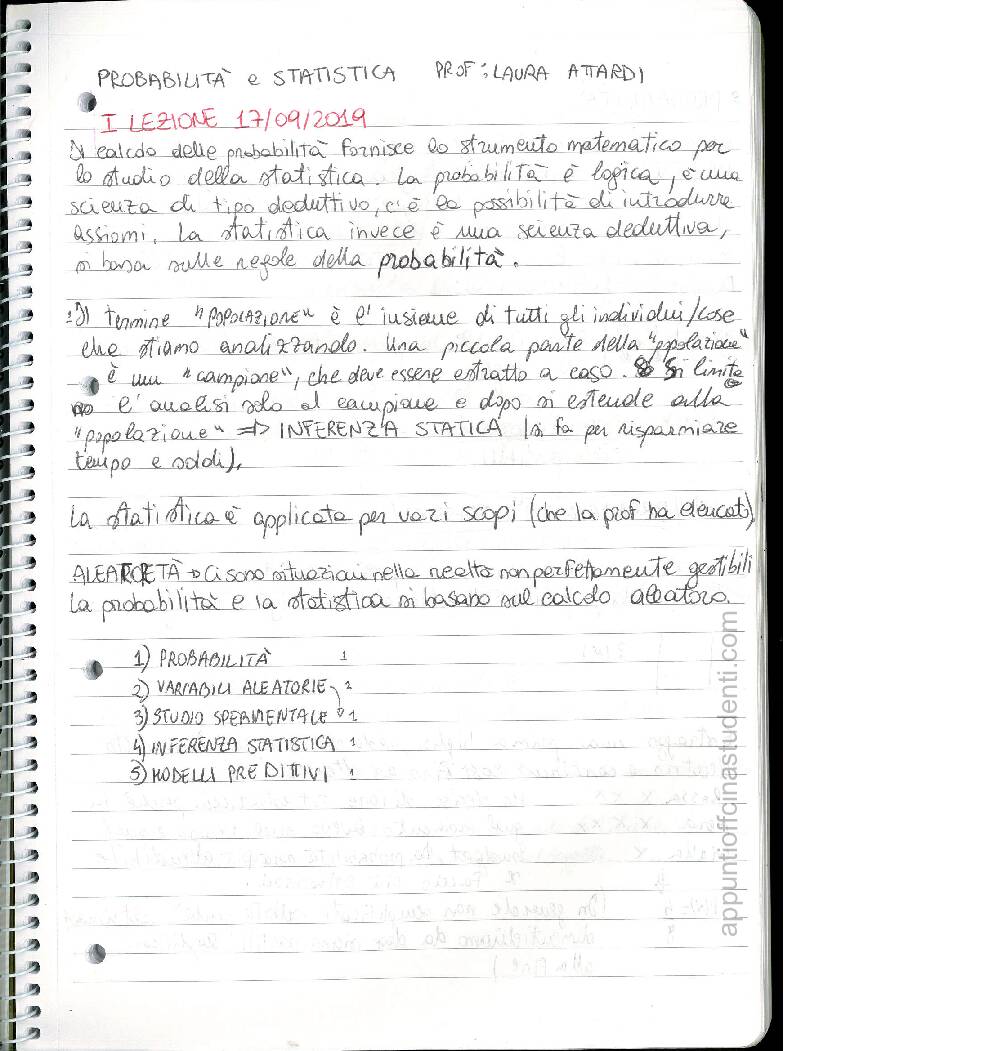 PROBABILITÀ e STATISTICA PROF: LAURA ATTARDI
I LEZIONE 17/09/2019
Il calcolo delle probabilità fornisce lo strumento matematico per
lo studio della statistica. La probabilità è logica, è una
scienza di tipo deduttivo, c'è la possibilità di introdurre
assiomi. La statistica invece è una scienza deduttiva,
si basa sulle regole della probabilità.
Il termine "POPOLAZIONE" è l'insieme di tutti gli individui/cose
che stiamo analizzando. Una piccola parte della "popolazione"
è un "campione", che deve essere estratto a caso. Si limita
l'analisi solo al campione e dopo si estende alla
"popolazione" => INFERENZA STATICA (si fa per risparmiare
tempo e soldi).
La statistica è applicata per vari scopi (che la prof ha elencato)
ALEATORIETÀ → Ci sono situazioni nella realtà non perfettamente gestibili
La probabilità e la statistica si basano sul calcolo aleatoro.
1) PROBABILITÀ 1
2) VARIABILI ALEATORIE 2
3) STUDIO SPERIMENTALE 1
4) INFERENZA STATISTICA 1
5) MODELLI PREDITTIVI 1
appuntiofficinastudenti.com